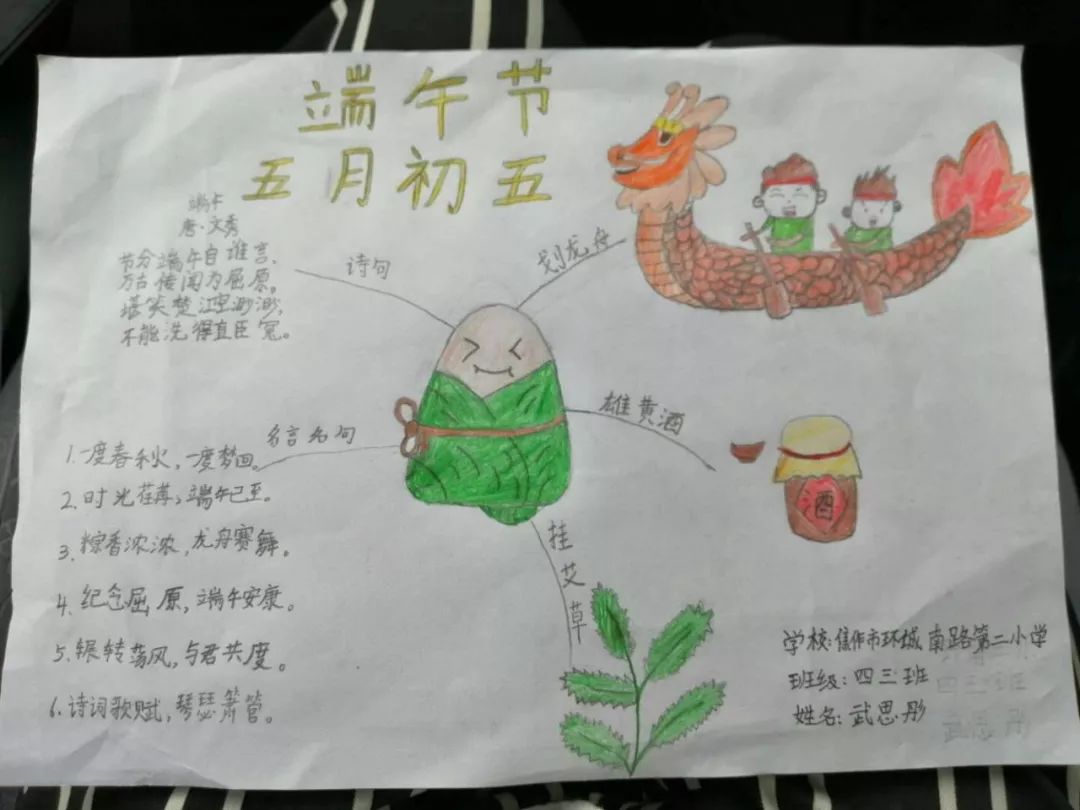 端午节
五月初五
端午
唐·文秀
节分端午自谁言，
万古传闻为屈原。
堪笑楚江空渺渺，
不能洗得直臣冤。
诗句
划龙舟
雄黄酒
酒
名言名句
1.一度春秋，一度梦回。
2.时光荏苒，端午已至。
3.粽香浓浓，龙舟赛舞。
4.纪念屈原，端午安康。
5.辗转荡风，与君共度。
6.诗词歌赋，琴瑟箫管。
挂艾草
学校：焦作市环城南路第二小学
班级：四三班
姓名：武思彤
四三班
武思彤